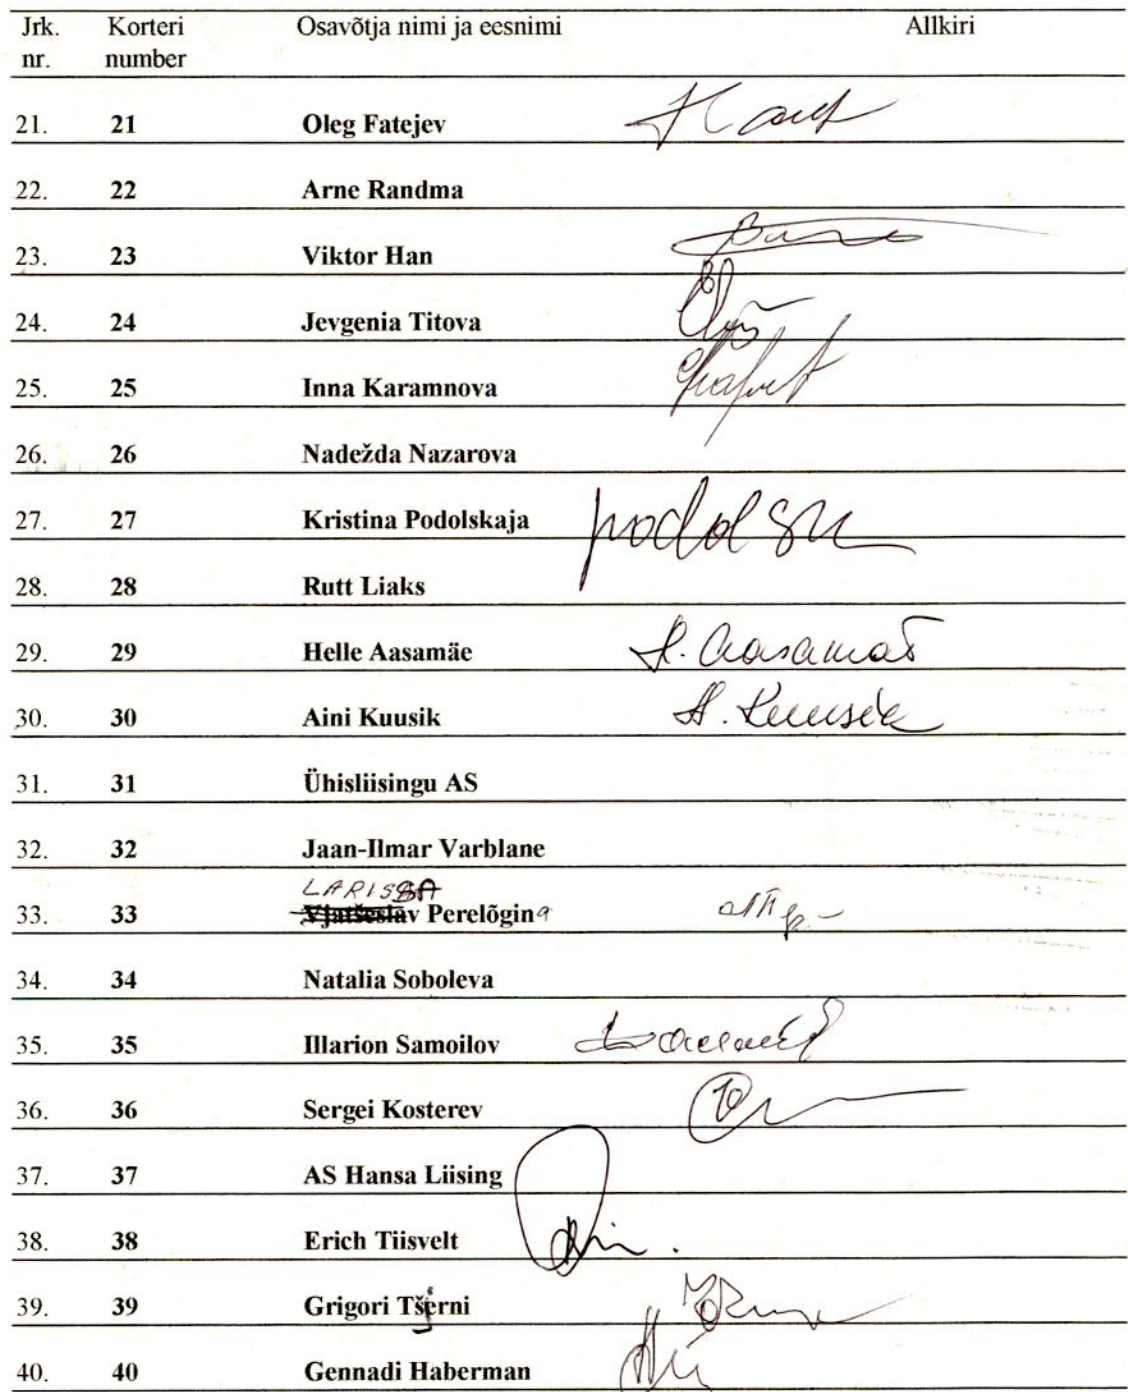 Jrk. Korteri Osavõtja nimi ja eesnimi Allkiri
nr. number
21. 21 Oleg Fatejev
22. 22 Arne Randma
23. 23 Viktor Han
24. 24 Jevgenia Titova
25. 25 Inna Karamnova
26. 26 Nadežda Nazarova
27. 27 Kristina Podolskaja
28. 28 Rutt Liaks
29. 29 Helle Aasamäe H. Aasamäe
30. 30 Aini Kuusik A. Kuusik
31. 31 Ühisliisingu AS
32. 32 Jaan-Ilmar Varblane
LARISSA
33. 33 Vjatšeslav Perelõgina
34. 34 Natalia Soboleva
35. 35 Illarion Samoilov
36. 36 Sergei Kosterev
37. 37 AS Hansa Liising
38. 38 Erich Tiisvelt
39. 39 Grigori Tšjerni
40. 40 Gennadi Haberman